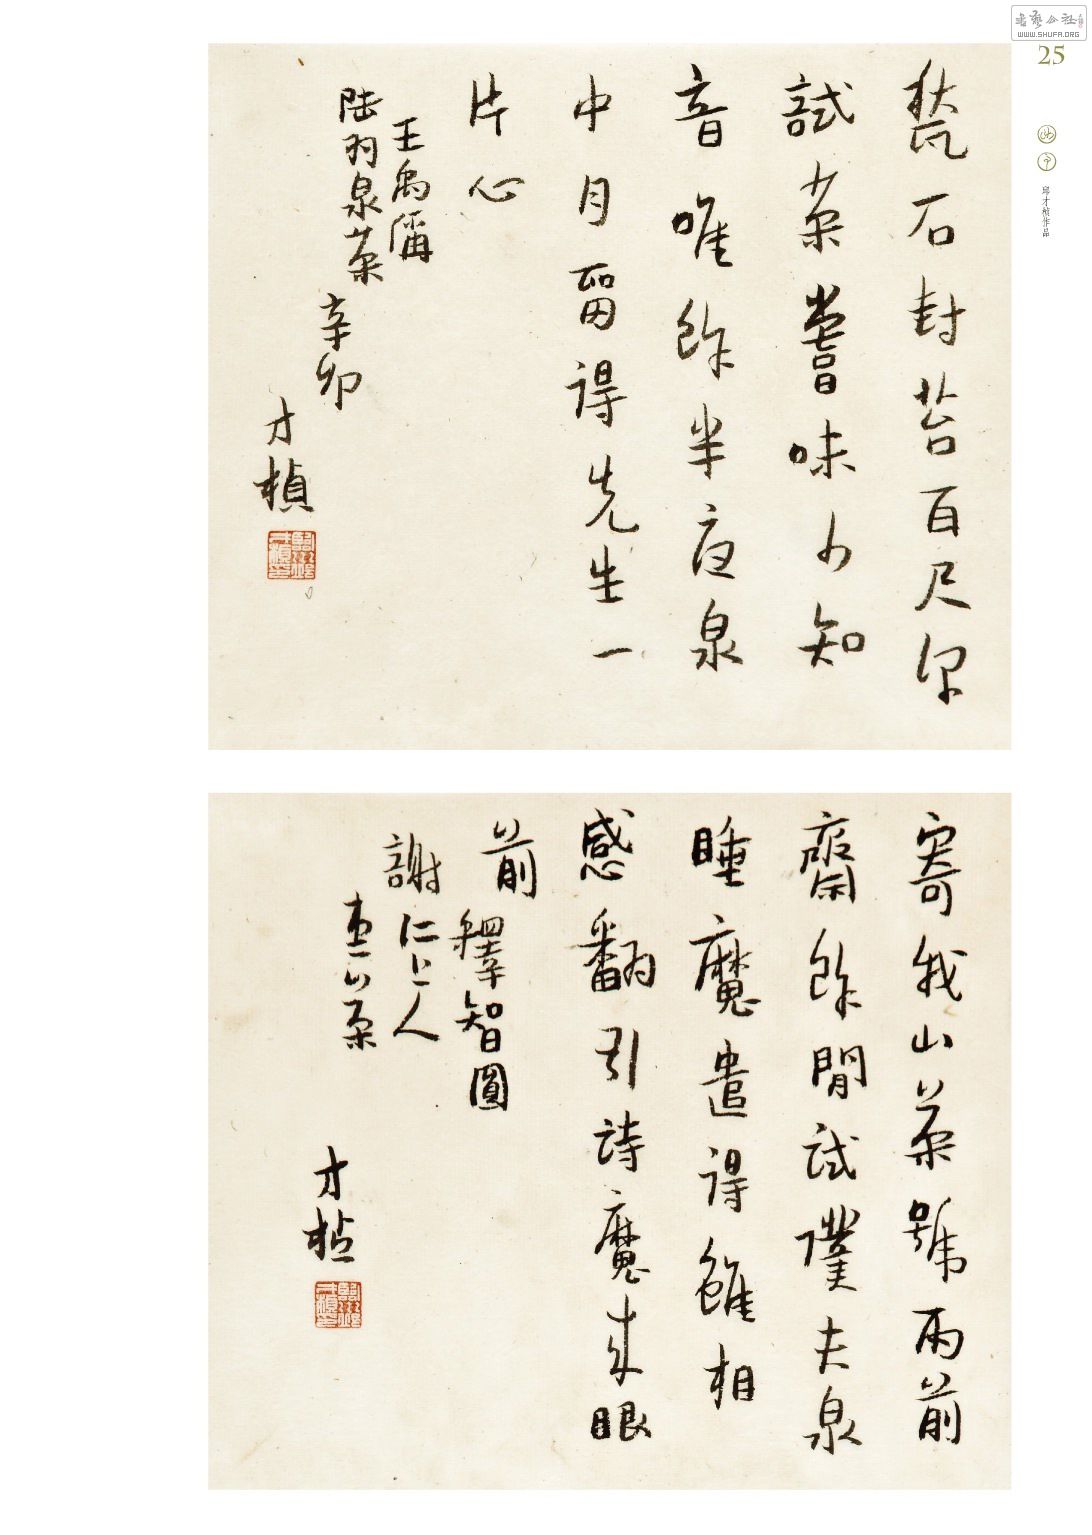 書藝公社
WWW.SHUFA.ORG
25
邱才桢作品
甃石封苔百尺深
試茶嘗味少知
音唯餘半夜泉
中月留得先生一
片心
王禹偁
陸羽泉茶
辛卯
才楨
寄我山茶號雨前
齋餘閒試僕夫泉
睡魔遣得雖相
感翻引詩魔來眼
前
釋智圓
謝仁上人
惠茶
才楨